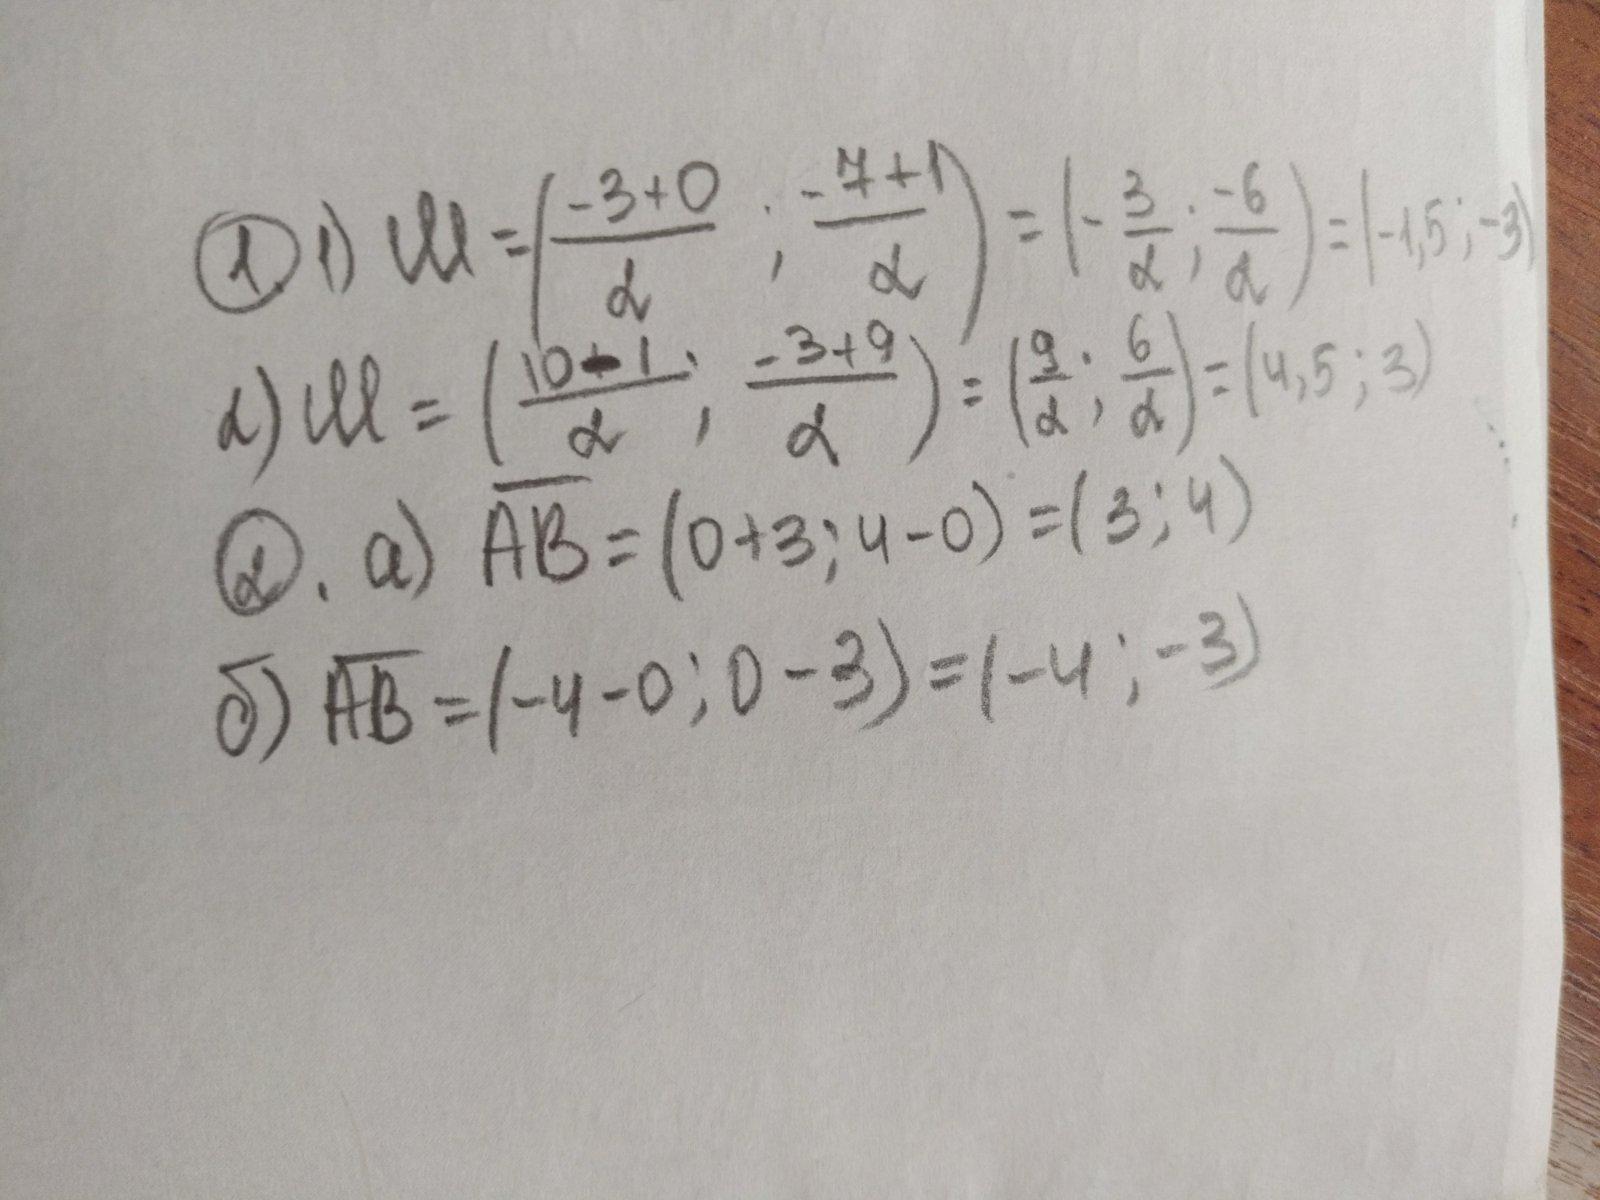 ① 1) M = (\frac{-3+0}{2} ; \frac{-7+1}{2}) = (-\frac{3}{2} ; \frac{-6}{2}) = (-1,5 ; -3)
2) M = (\frac{10-1}{2} ; \frac{-3+9}{2}) = (\frac{9}{2} ; \frac{6}{2}) = (4,5 ; 3)
②. а) \overline{AB} = (0+3; 4-0) = (3; 4)
б) \overline{AB} = (-4-0; 0-3) = (-4; -3)